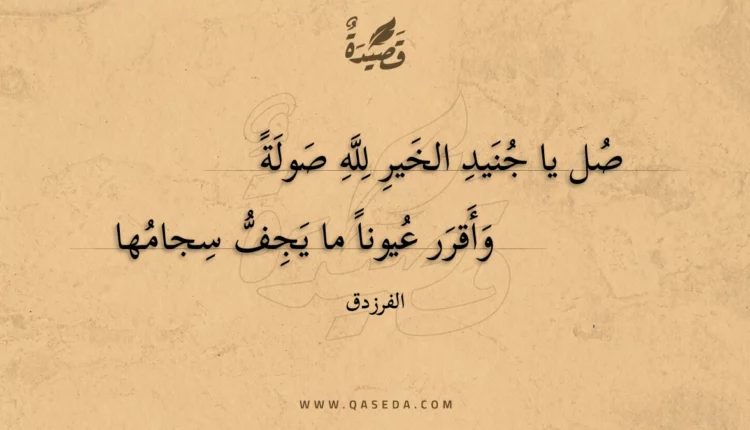 قَصِيْدَةٌ
صُل يا جُنَيدِ الخَيرِ لِلَّهِ صَولَةً
وَأَقرَر عُيوناً ما يَجِفُّ سِجامُها
الفرزدق
WWW.QASEDA.COM